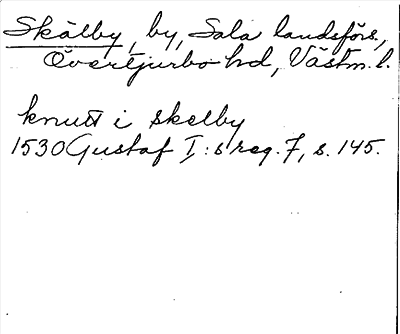 Skälby, by, Sala landsförs.,
Övertjurbo hd, Västm. l.
knutt i skelby
1530 Gustaf I:s reg. 7, s. 145.